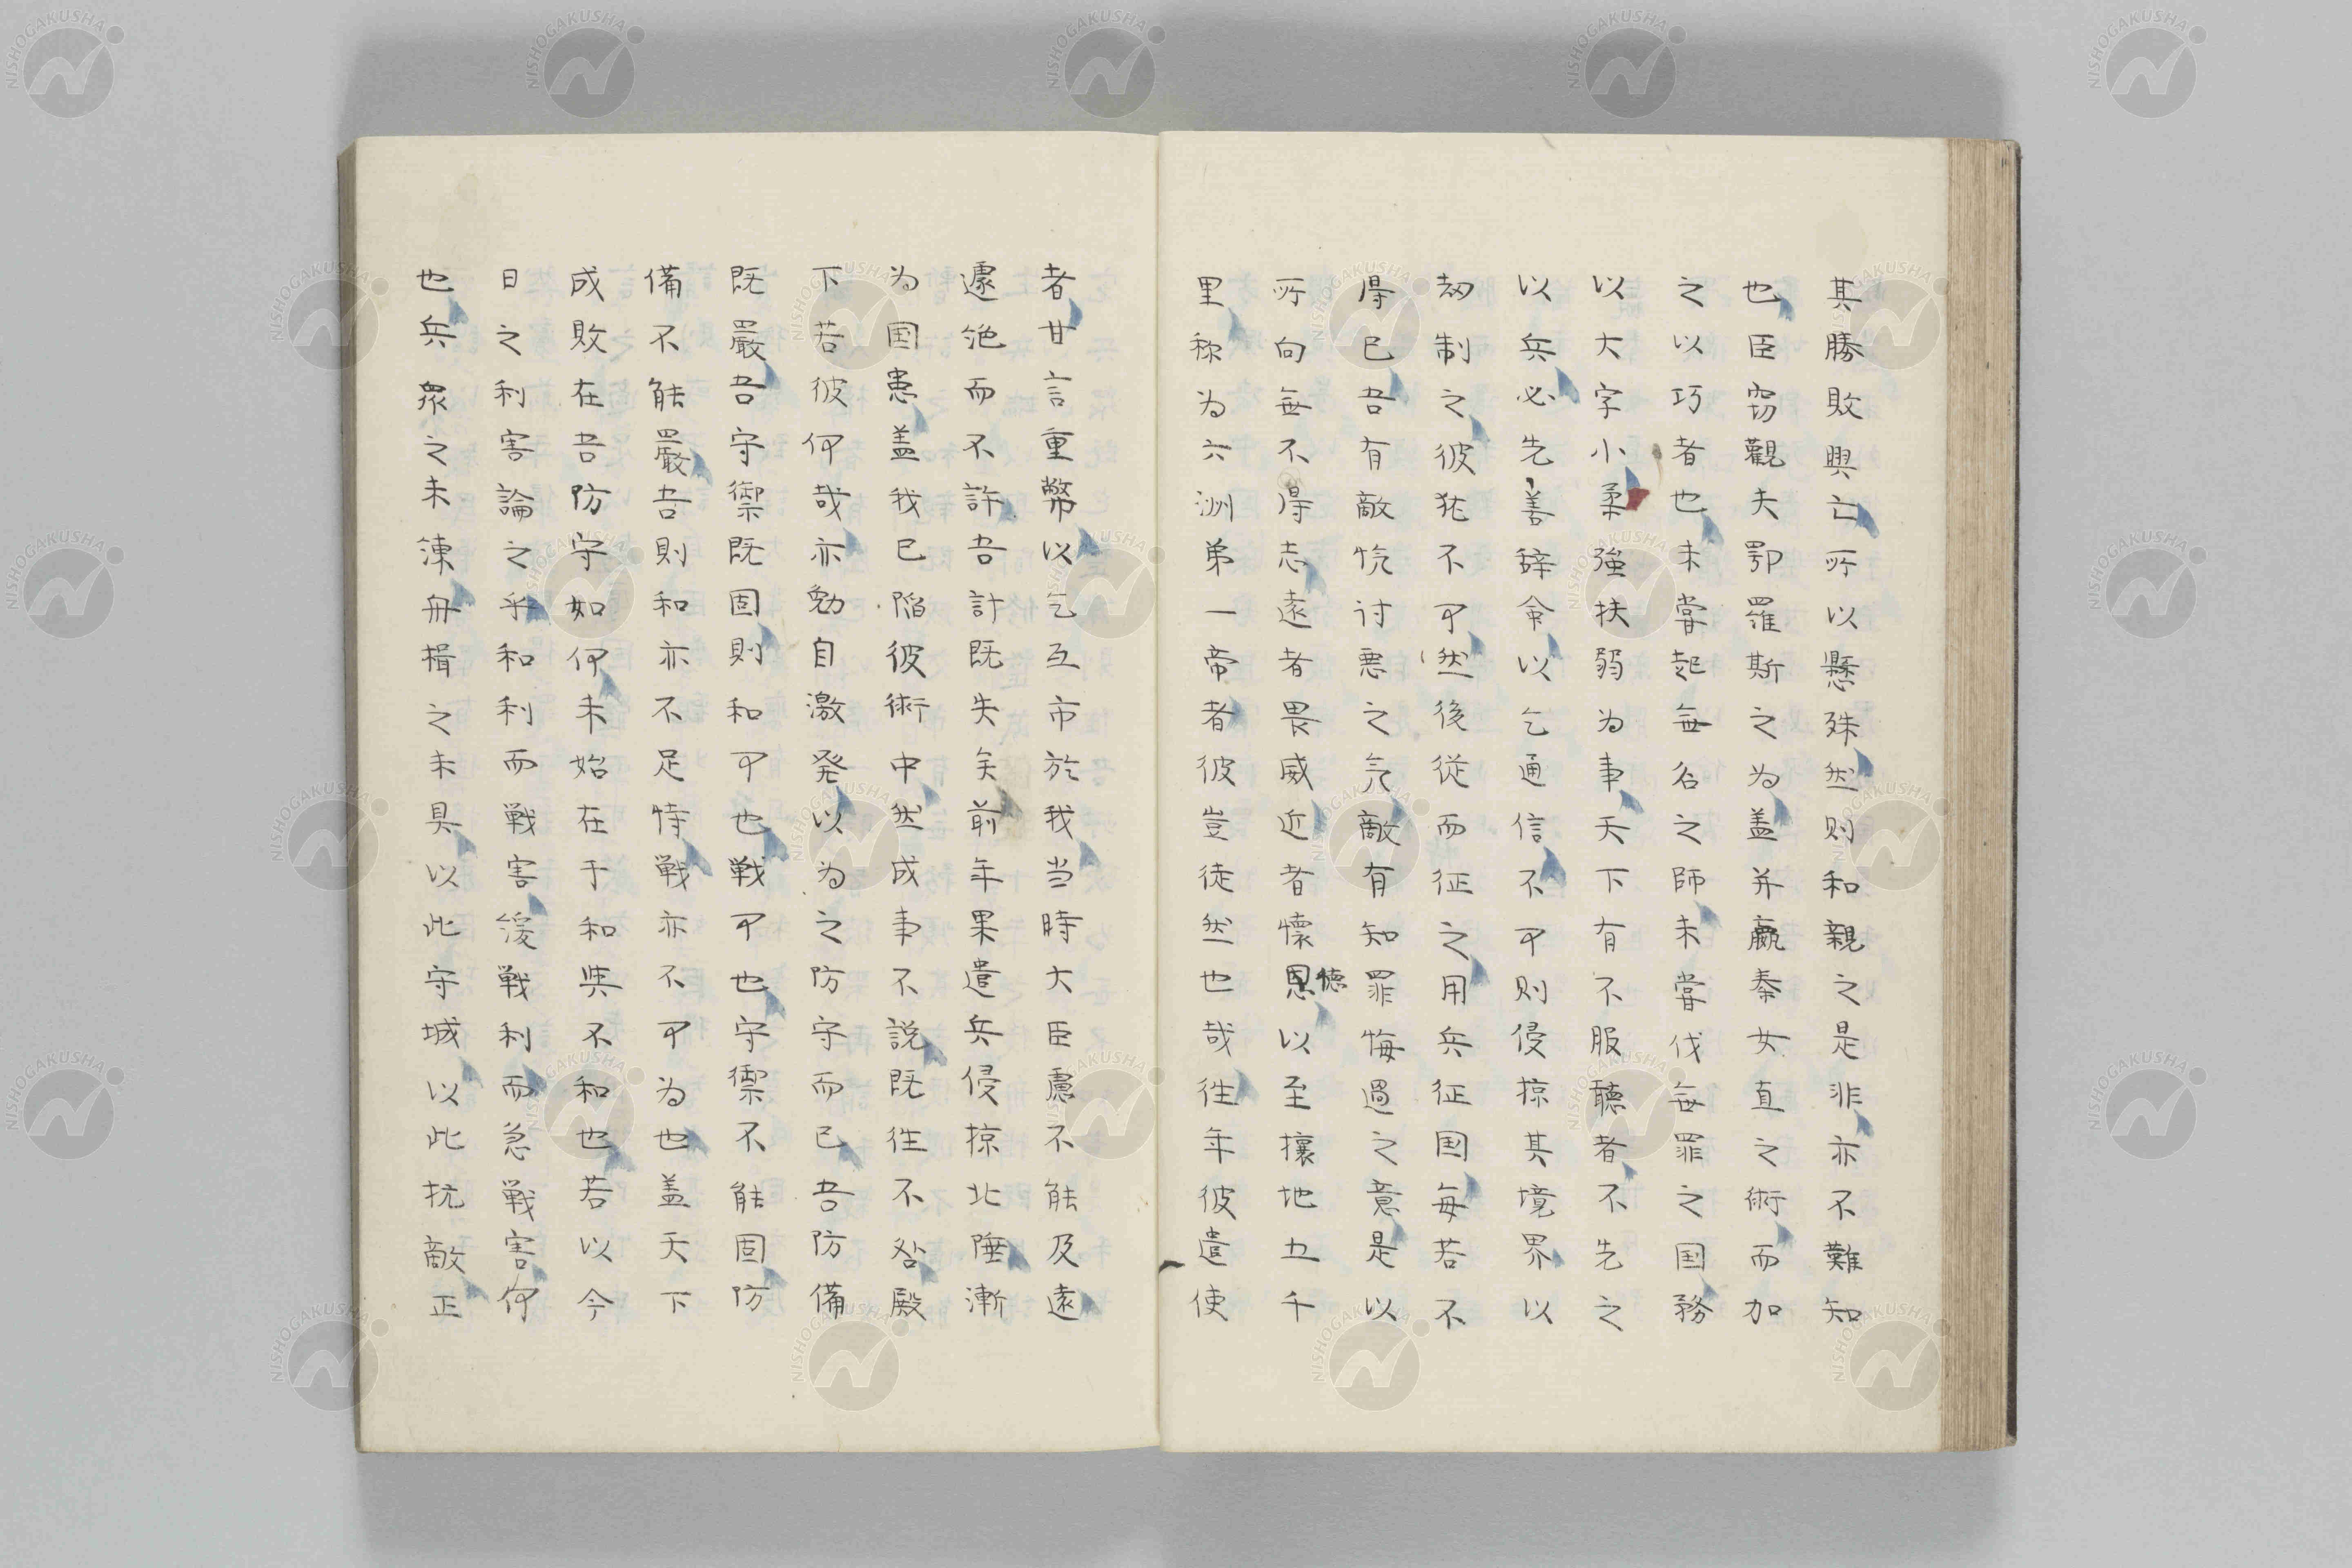 其勝敗興亡所以懸殊然則和親之是非亦不難知
也臣窃觀夫鄂羅斯之為盖并嬴秦女直之術而加
之以巧者也未嘗起無名之師未嘗伐無罪之国務
以大字小柔強扶弱為事天下有不服聴者不先之
以兵必先善辞命以乞通信不可則侵掠其境界以
劫制之彼犹不可然後従而征之用兵征国毎若不
得已吾有敵忾讨悪之気敵有知罪悔過之意是以
所向無不得志遠者畏威近者懐恩徳以至攘地五千
里称為六洲第一帝者彼豈徒然也哉往年彼遣使
者甘言重幣以乞互市於我当時大臣慮不能及遠
遽絶而不許吾計既失矣前年果遣兵侵掠北陲漸
為国患盖我已陥彼術中然成事不説既往不咎殿
下若彼何哉亦勉自激発以為之防守而已吾防備
既嚴吾守禦既固則和可也戦可也守禦不能固防
備不能嚴吾則和亦不足恃戦亦不可為也盖天下
成敗在吾防守如何未始在于和與不和也若以今
日之利害論之乎和利而戦害緩戦利而急戦害何
也兵衆之未練舟楫之未具以此守城以此抗敵正
NISHOGAKUSHA